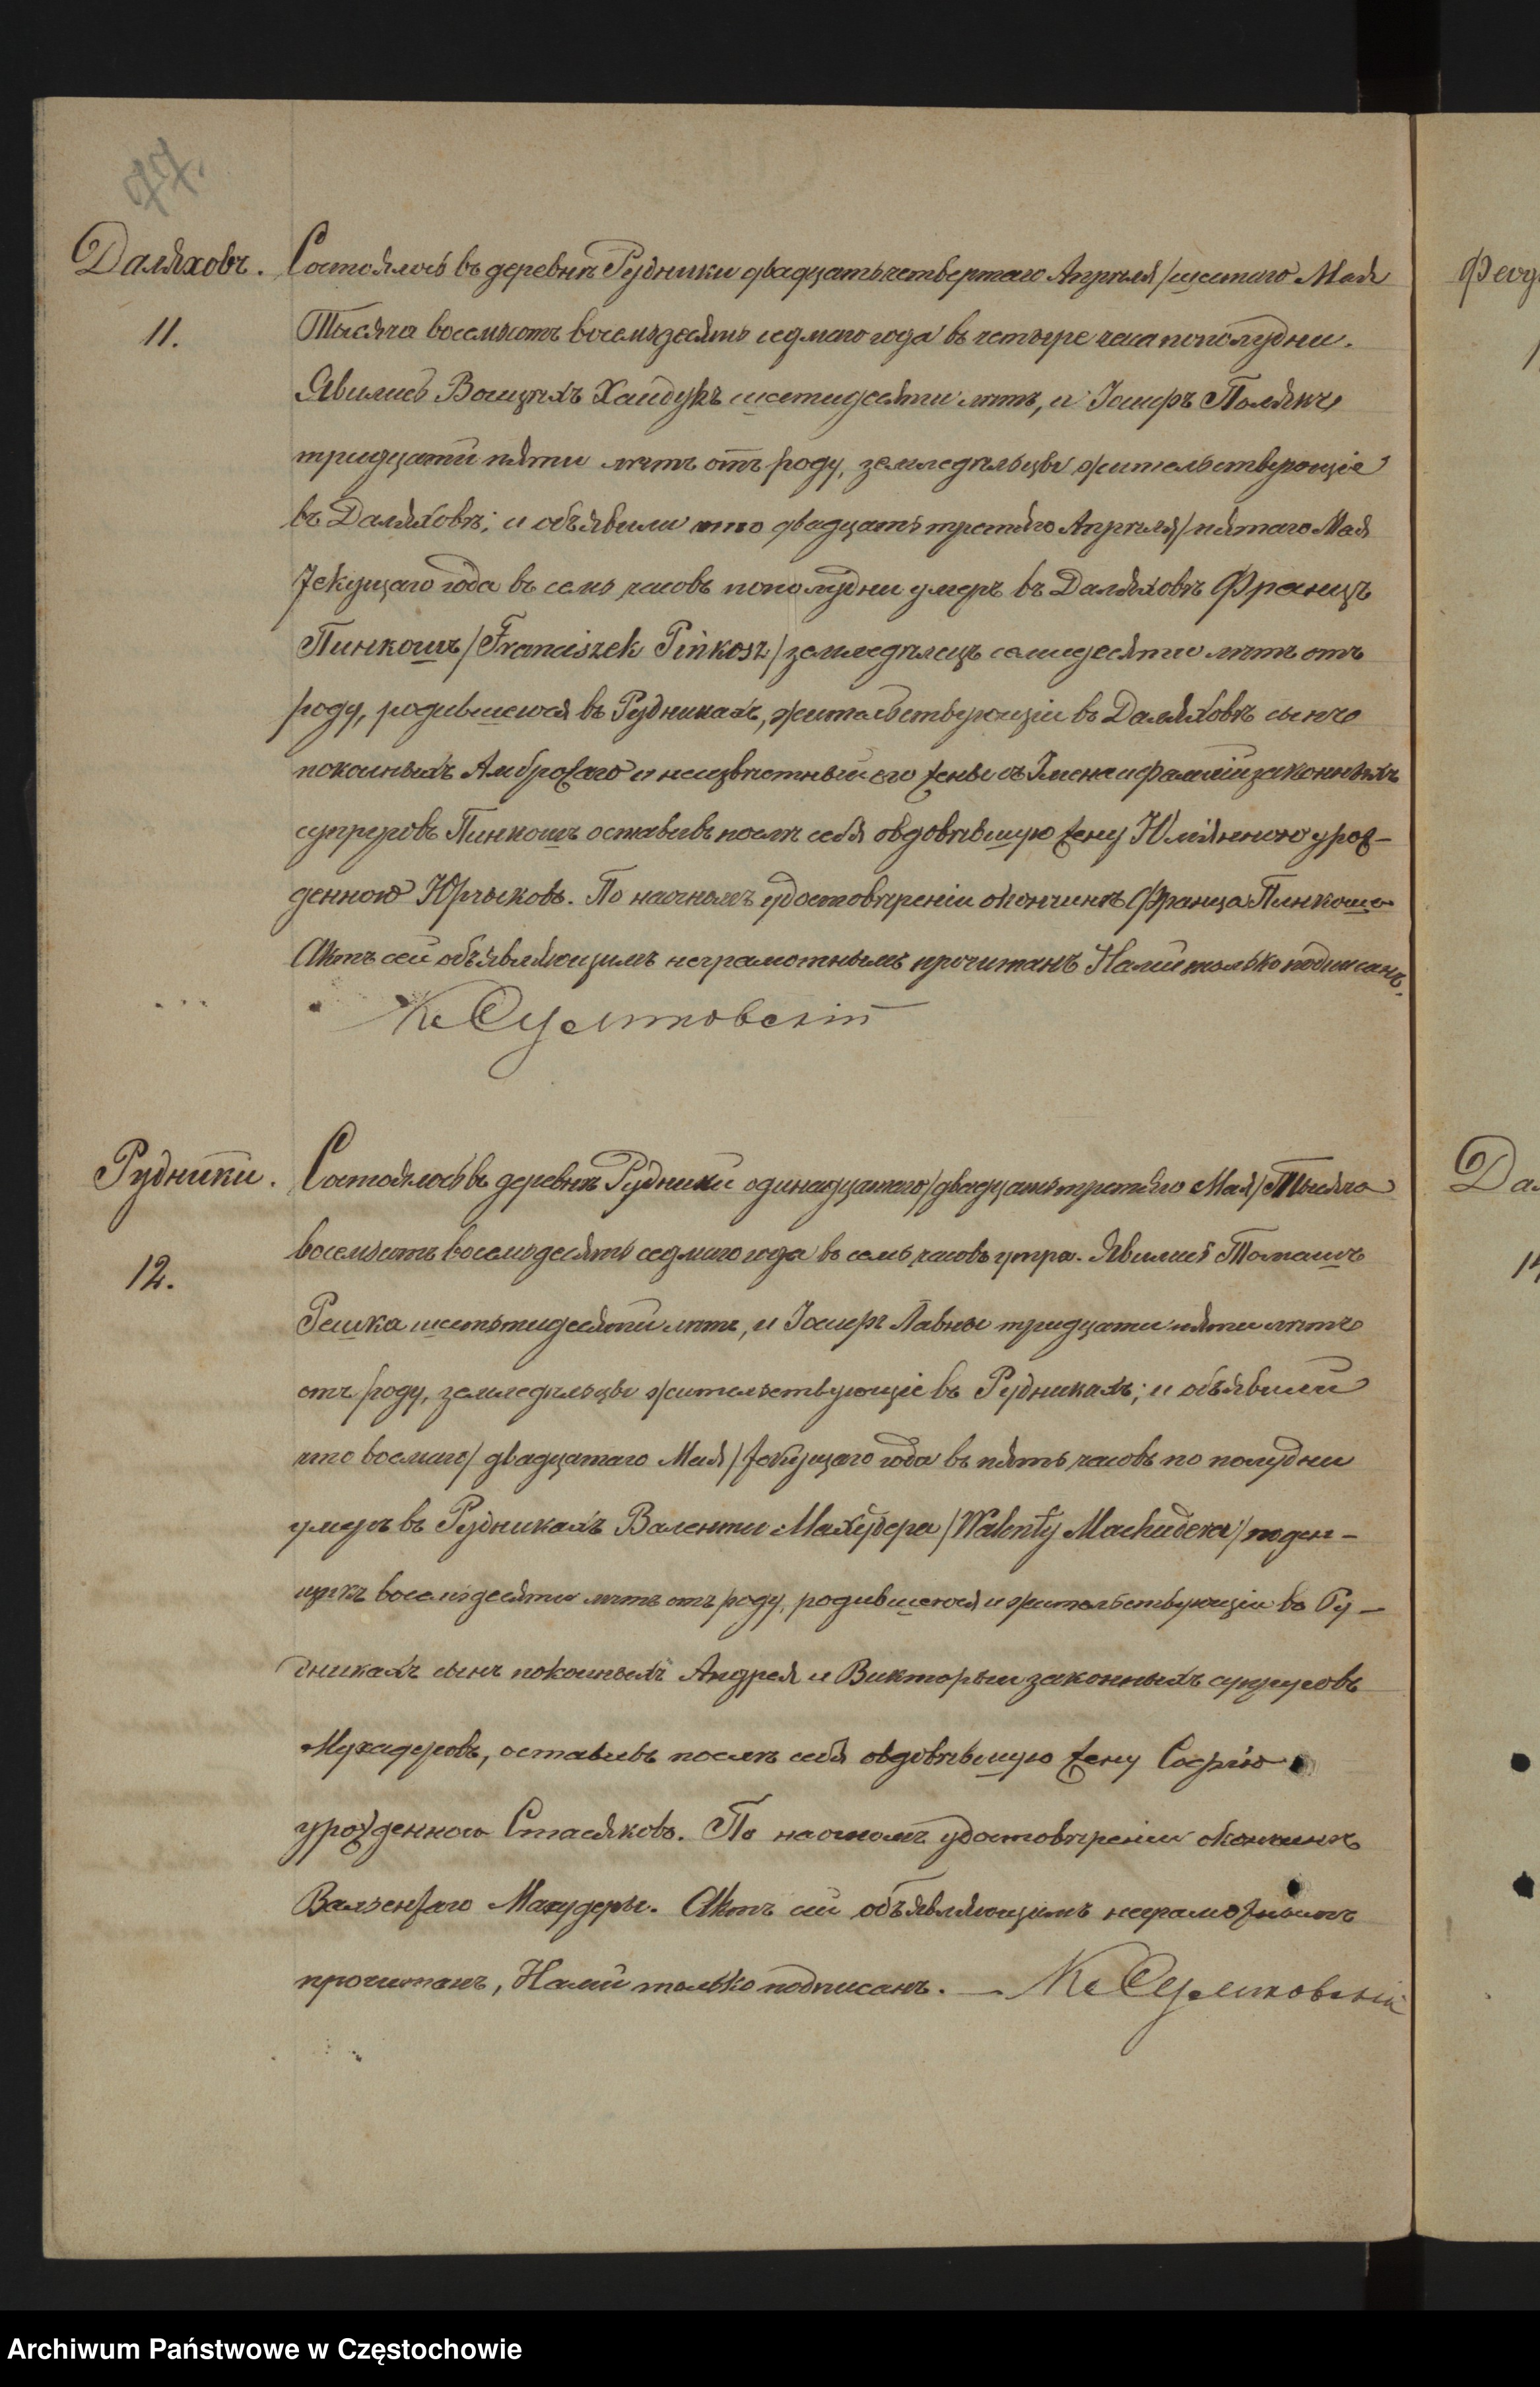 Даляховъ.
11.
Состоялось въ деревнѣ Рудники двадцать четвертаго Апрѣля /шестаго Мая
Тысяча восемьсотъ восемьдесятъ седмаго года въ четыре часа пополудни.
Явились Войцѣхъ Хайдукъ шестидесяти лѣтъ, и Іосифъ Полякъ
тридцати пяти лѣтъ отъ роду, земледѣльцы жительствующіе
въ Даляховѣ; и объявили что двадцать третяго Апрѣля/пятаго Мая
текущаго года въ семь часовъ пополудни умеръ въ Даляховѣ Францъ
Пинкошъ /Franciszek Pinkosz/ земледѣлецъ семидесяти лѣтъ отъ
роду, родившейся въ Рудникахъ, жительствующій въ Даляховѣ сынъ
покойныхъ Амброжаго и неизвѣстный его жены съ Имена и фамиліи законныхъ
супруговъ Пинкошъ оставивъ послѣ себя овдовѣвшую жену Юліянною урож-
денною Юрчыковъ. По наочномъ удостовѣреніи окончинѣ Франца Пинкоша
Актъ сей объявляющимъ неграмотнымъ прочитанъ Нами только подписанъ.
Рудники.
12.
Состоялось въ деревнѣ Рудники одинадцатаго/двадцать третяго Мая/Тысяча
восемьсотъ восемьдесятъ седмаго года въ семь часовъ утра. Явились Томашъ
Решка шестьтидесяти лѣтъ, и Іосифъ Лавны тридцати пяти лѣтъ
отъ роду, земледѣльцы жительствующіе въ Рудникахъ; и объявили
что восмаго/двадцатаго Мая/текущаго года въ пять часовъ по полудни
умеръ въ Рудникахъ Валенти Махудера /Walenty Machudera/ поден-
щикъ восемдесяти лѣтъ отъ роду, родившейся и жительствующій въ Ру-
дникахъ сынъ покойныхъ Андрея и Викторыи законныхъ супруговъ
Мухадеровъ, оставивъ послѣ себя овдовѣвшую жену Софію
урожденною Стасяковъ. По наочномъ удостовѣреніи окончинѣ
Валентаго Махудеры. Актъ сій объявляющимъ неграмотнымъ
прочитанъ, Нами только подписанъ. —